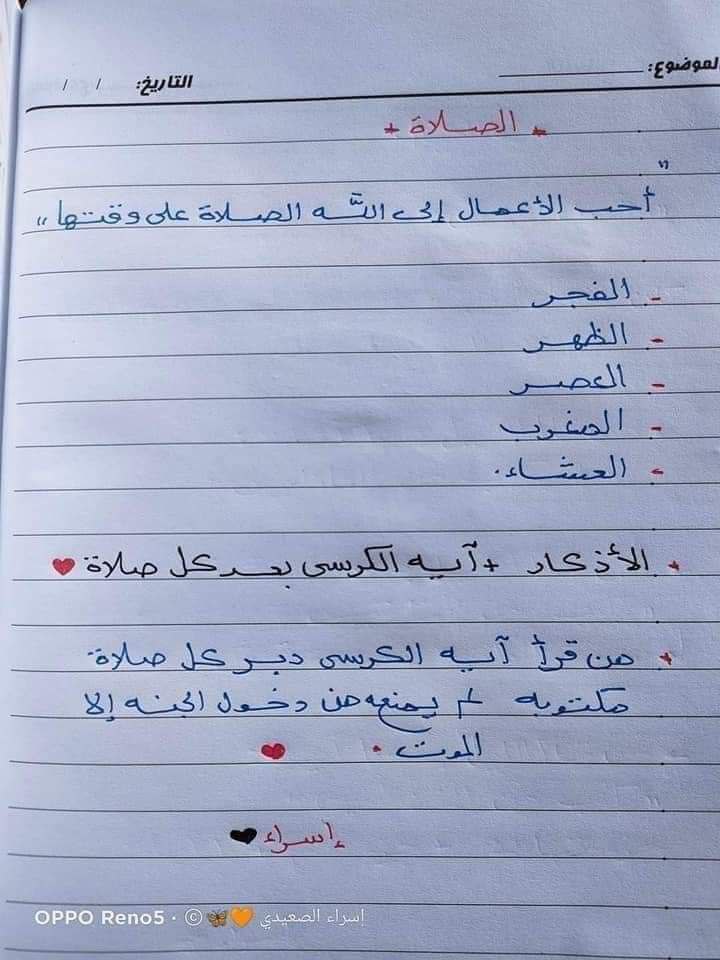 الموضوع: التاريخ: / /
* الصلاة *
"أحب الأعمال إلى اللّه الصلاة على وقتها"
- الفجر
- الظهر
- العصر
- المغرب
- العشاء.
* الأذكار + آيه الكرسى بعد كل صلاة ❤
* من قرأ آيه الكرسى دبر كل صلاة
مكتوبه لم يمنعه من دخول الجنه إلا
الموت. ❤
إسراء 🖤
OPPO Reno5 · © 🦋🧡 إسراء الصعيدي